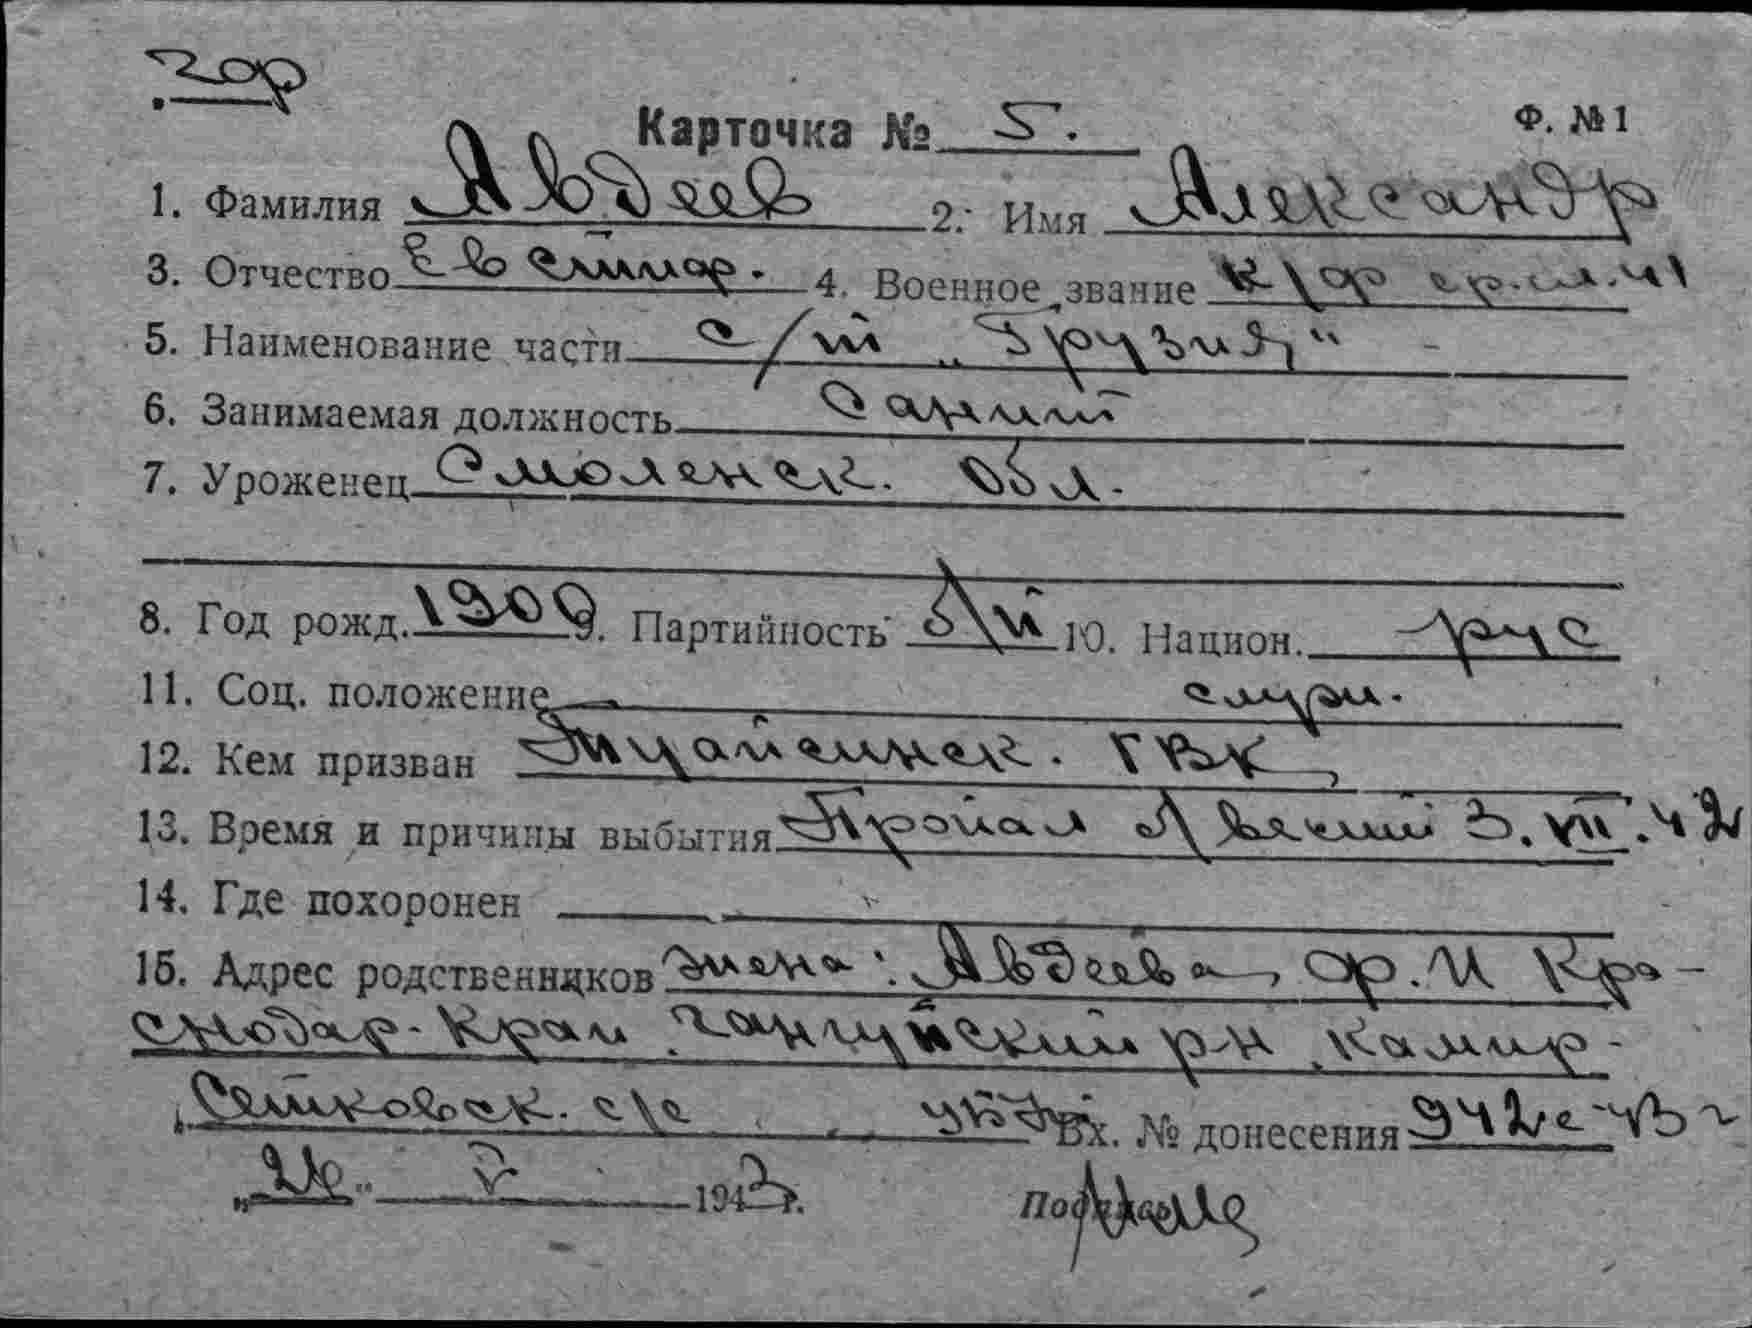 Карточка № 5. Ф. №1
1. Фамилия Авдеев 2. Имя Александр
3. Отчество 4. Военное звание к/ф
5. Наименование части с/т „Грузия"
6. Занимаемая должность Санит
7. Уроженец Смоленск. обл.
8. Год рожд. 1909 9. Партийность б/п 10. Национ. рус
11. Соц. положение служ.
12. Кем призван Туапсинск. ГВК
13. Время и причины выбытия Пропал 3.VII.42
14. Где похоронен
15. Адрес родственников жена: Авдеева, Кра-
снодар. край р-н
с/с Вх. № донесения 942с-43г
„26" V 1943г. Подпись